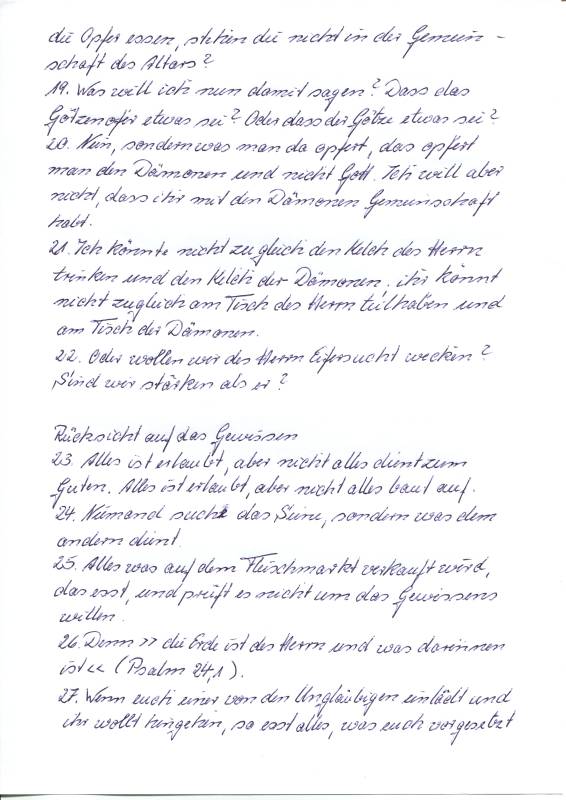 die Opfer essen, stehen die nicht in der Gemein-
schaft des Altars?
19. Was will ich nun damit sagen? Dass das
Götzenopfer etwas sei? Oder dass der Götze etwas sei?
20. Nein, sondern was man da opfert, das opfert
man den Dämonen und nicht Gott. Ich will aber
nicht, dass ihr mit den Dämonen Gemeinschaft
habt.
21. Ich könnte nicht zugleich den Kelch des Herrn
trinken und den Kelch der Dämonen; ihr könnt
nicht zugleich am Tisch des Herrn teilhaben und
am Tisch der Dämonen.
22. Oder wollen wir des Herrn Eifersucht wecken?
Sind wir stärken als er?
Rücksicht auf das Gewissen
23. Alles ist erlaubt, aber nicht alles dient zum
Guten. Alles ist erlaubt, aber nicht alles baut auf.
24. Niemand suche das Seine, sondern was dem
andern dient.
25. Alles was auf dem Fleischmarkt verkauft wird,
das esst, und prüft es nicht um das Gewissens
willen.
26. Denn >> die Erde ist des Herrn und was darinnen
ist << (Psalm 24,1).
27. Wenn euch einer von den Ungläubigen einlädt und
ihr wollt hingehen, so esst alles, was euch vorgesetzt